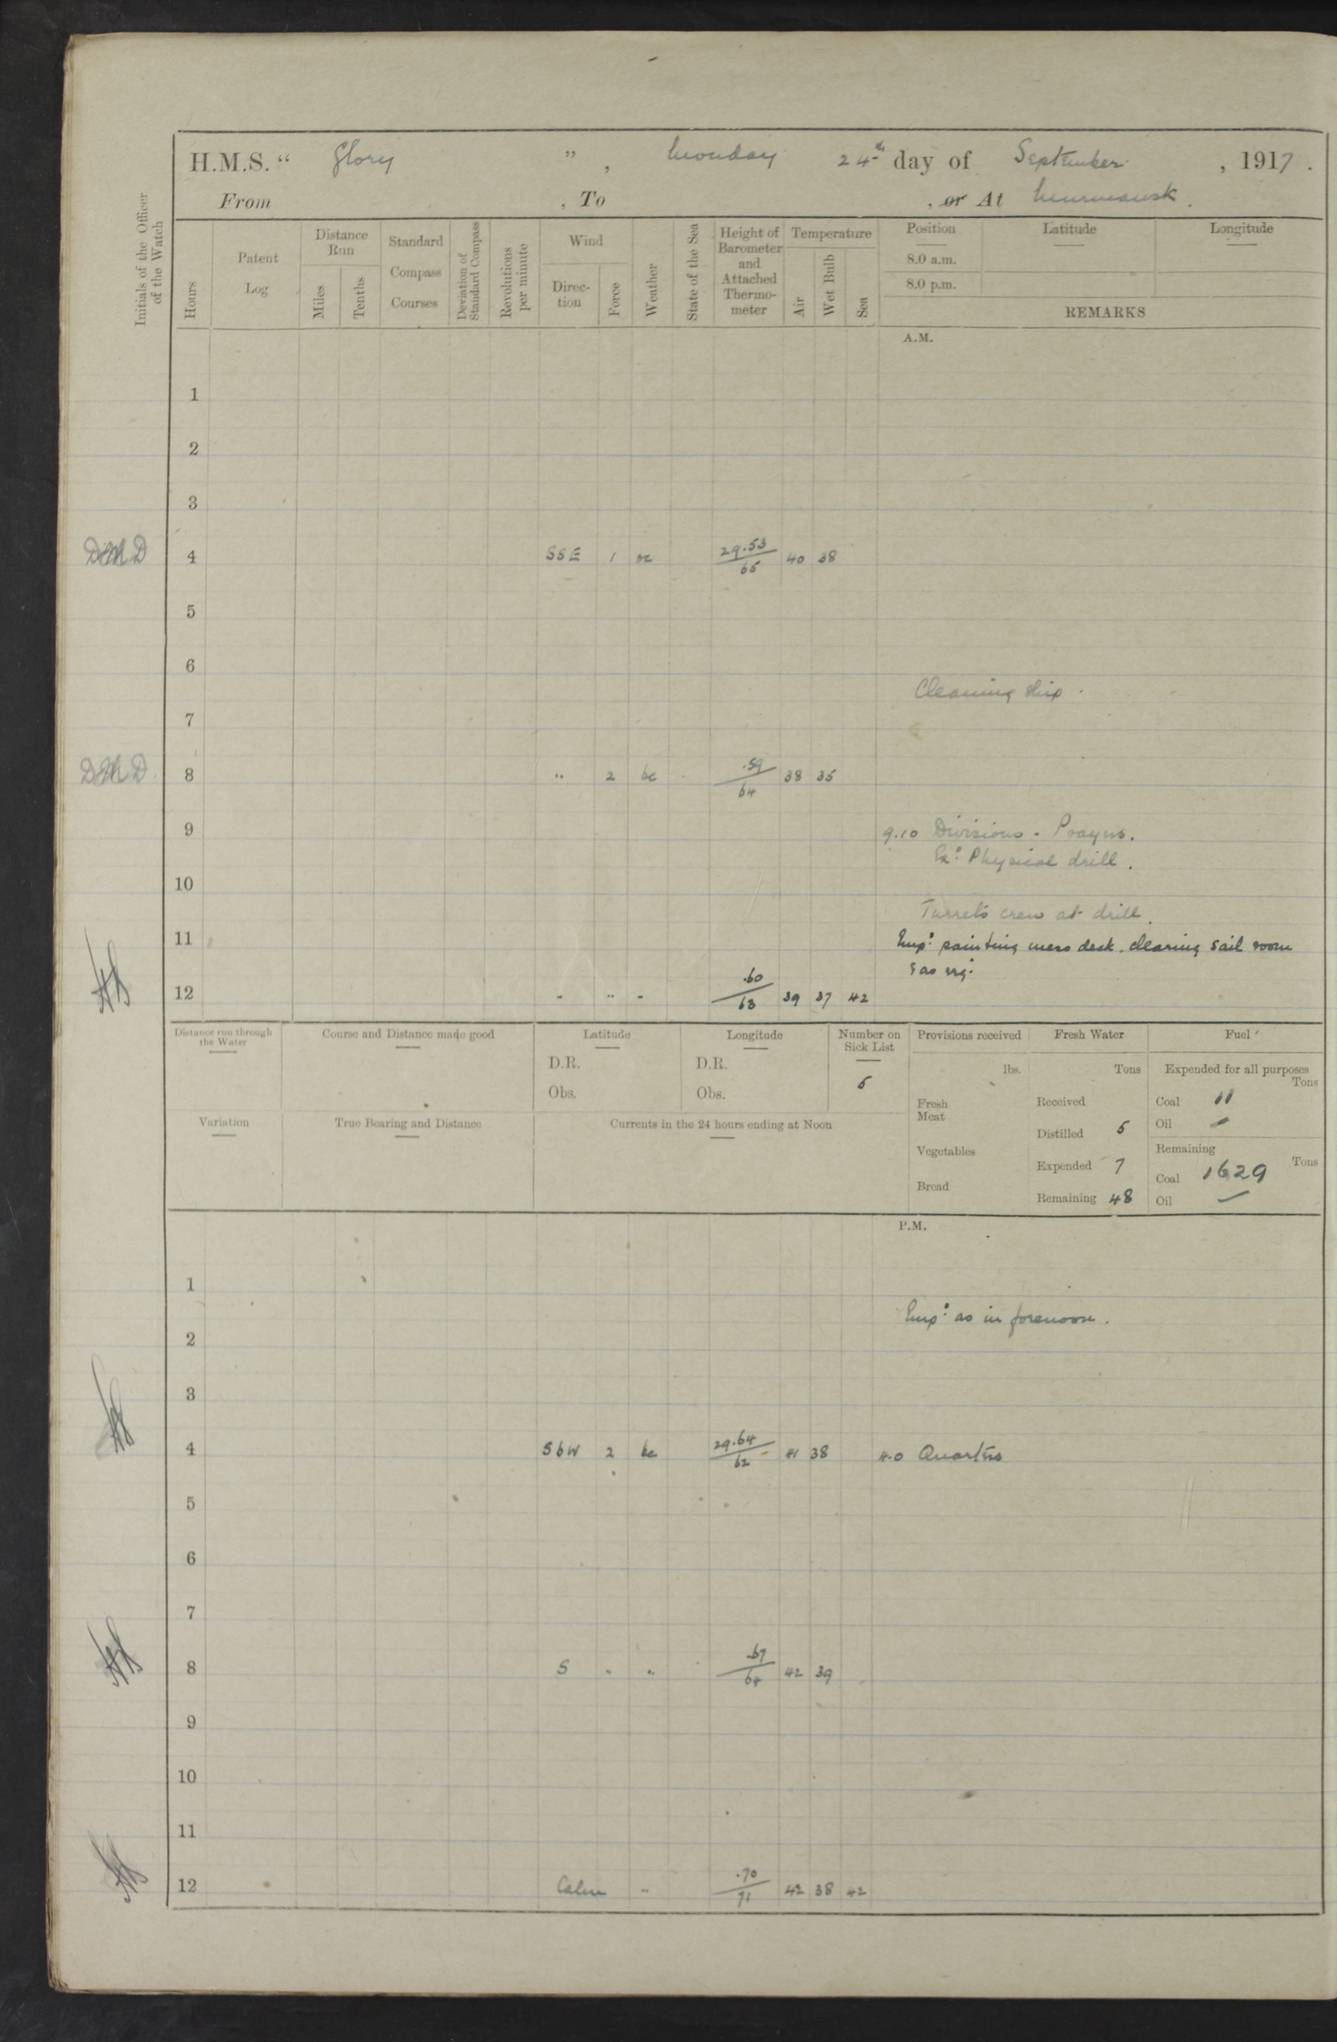 H.M.S. “ Glory ” , Monday 24th day of September , 1917 .
From , To , or At Murmansk .
Initials of the Officer of the Watch
Hours
Patent Log
Distance Run
Miles
Tenths
Standard Compass Courses
Deviation of Standard Compass
Revolutions per minute
Wind
Direction
Force
Weather
State of the Sea
Height of Barometer and Attached Thermometer
Temperature
Air
Wet Bulb
Sea
Position Latitude Longitude
8.0 a.m.
8.0 p.m.
REMARKS
A.M.
1
2
3
4 SSE 1 29.53/65 40 38
5
6
Cleaning ship.
7
8 " 2 bc .59/64 38 35
9 9.10 Divisions - Prayers.
Ex: Physical drill.
10
Turrets crew at drill.
11 Emp: painting mess deck. clearing sail room
& as req:
12 " " " .60/63 39 37 42
Distance run through the Water
Course and Distance made good
Latitude
D.R.
Obs.
Longitude
D.R.
Obs.
Number on Sick List
5
Provisions received
lbs.
Fresh Meat
Vegetables
Bread
Fresh Water
Tons
Received
Distilled 5
Expended 7
Remaining 48
Fuel
Expended for all purposes
Tons
Coal 11
Oil –
Remaining
Tons
Coal 1629
Oil –
Variation
True Bearing and Distance
Currents in the 24 hours ending at Noon
P.M.
1
Emp: as in forenoon.
2
3
4 SbW 2 bc 29.64/62 41 38 4.0 Quarters
5
6
7
8 S " " .67/64 42 39
9
10
11
12 Calm " .70/71 42 38 42